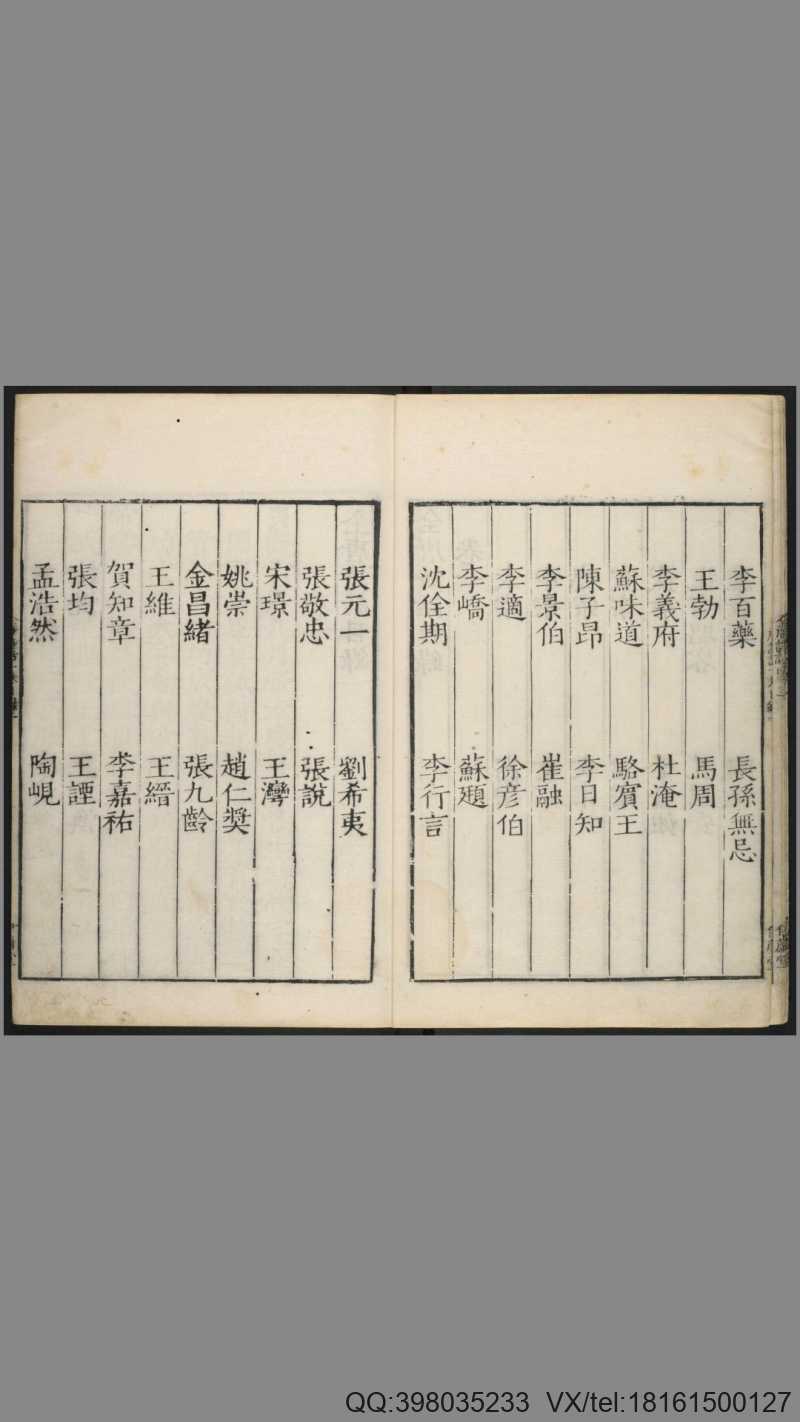 李百藥 長孫無忌
王勃 馬周
李義府 杜淹
蘇味道 駱賓王
陳子昂 李日知
李景伯 崔融
李適 徐彦伯
李嶠 蘇頲
沈佺期 李行言
張元一 劉希夷
張敬忠 張説
宋璟 王灣
姚崇 趙仁奬
金昌緒 張九齡
王維 王縉
賀知章 李嘉祐
張均 王諲
孟浩然 陶峴
QQ:398035233 VX/tel:18161500127